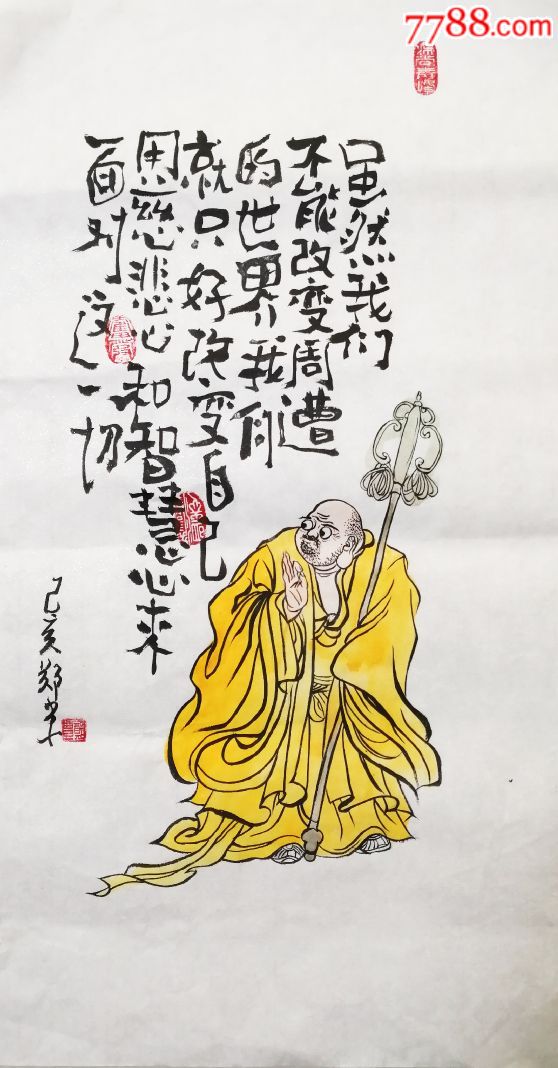 7788.com
虽然我们
不能改变周遭
的世界我们
就只好改变自己
用慈悲心和智慧心来
面对这一切
己亥郑